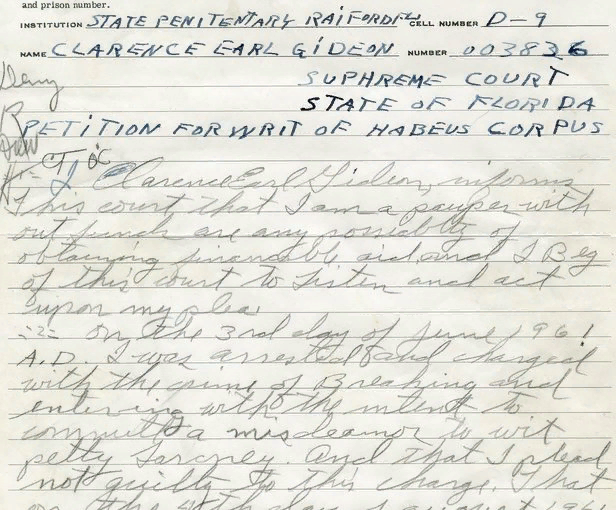 and prison number.
INSTITUTION STATE PENITENTARY RAIFORD FL CELL NUMBER D-9
NAME CLARENCE EARL GIDEON NUMBER 003826
SUPHREME COURT
STATE OF FLORIDA
Deny
PETITION FOR WRIT OF HABEUS CORPUS
I Clarence Earl Gideon, informs
This court that I am a pauper with
out funds are any possiablty of
obtaining financiable aid and I Beg
of this court to listen and act
upon my plea
-2- On the 3rd day of June 1961
A.D. I was arrested and charged
with the crime of Breaking and
entering with the intent to
commit a misdeamor to wit
petty larcney. And that I plead
not guilty to this charge. That
on the day of august 1961